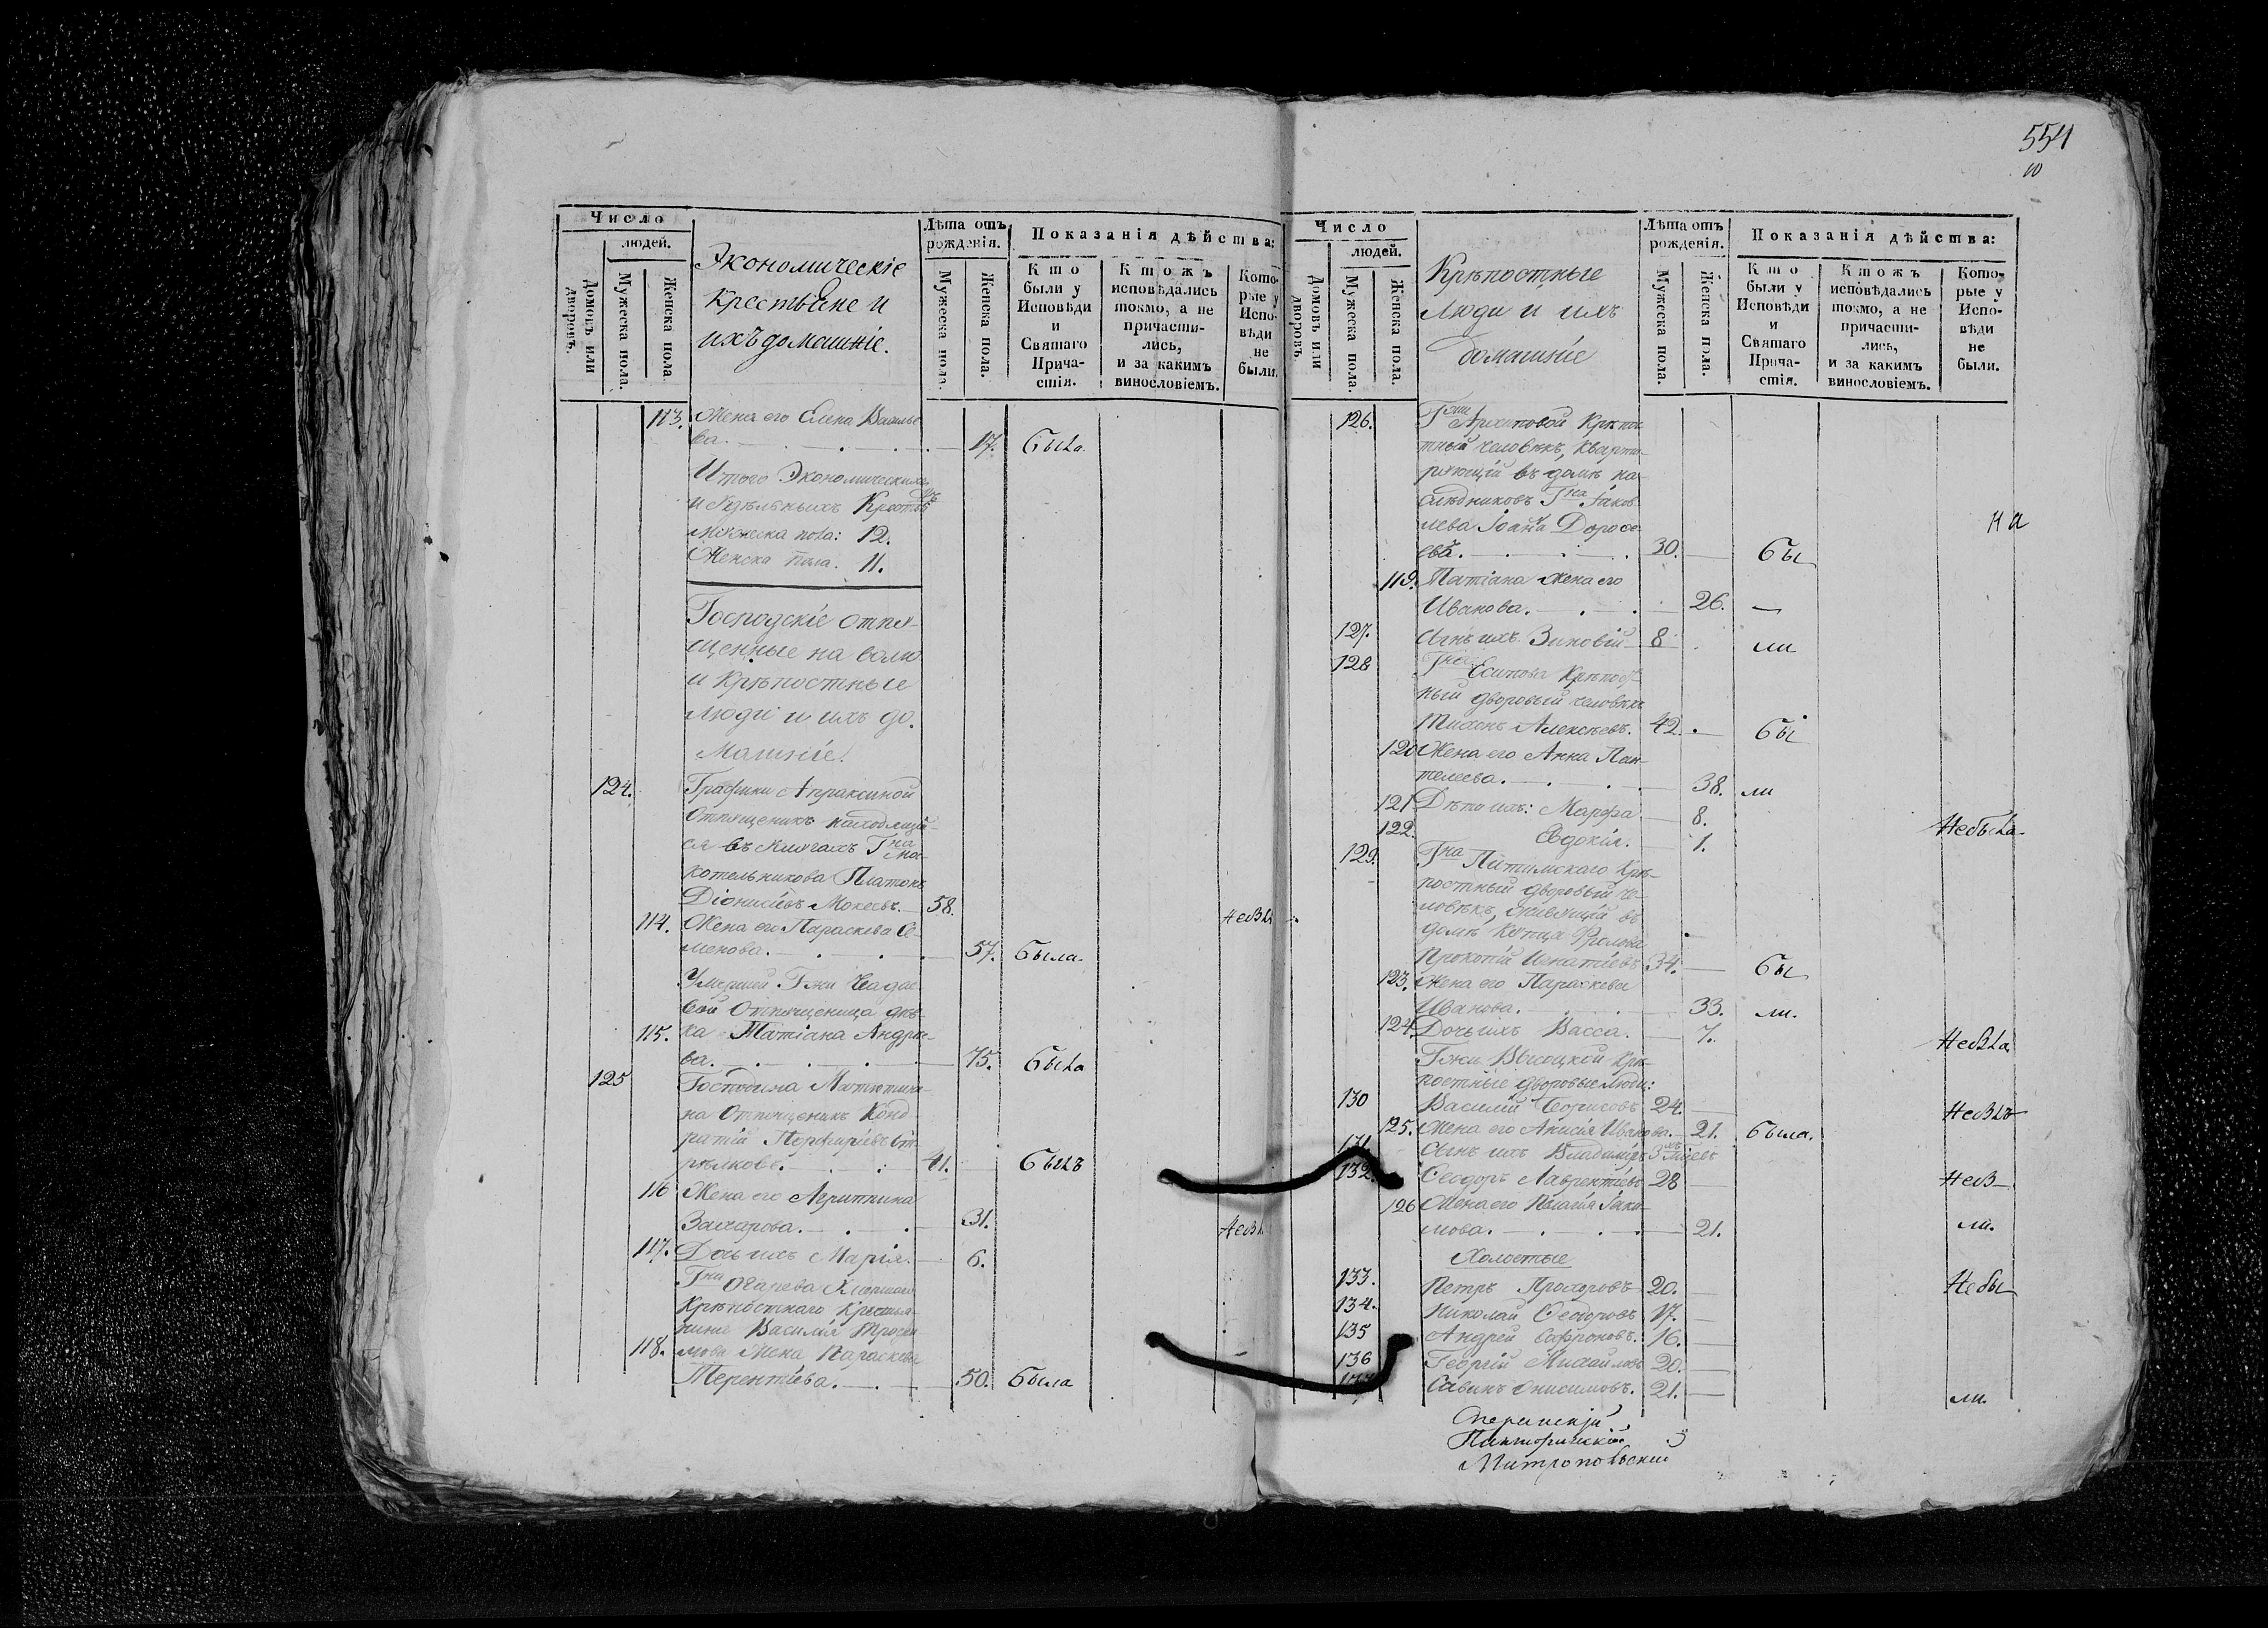 554
10
Число
людей.
Домовъ или дворовъ.
Мужеска пола.
Женска пола.
Экономическіе
Крестьяне и
ихъ домашніе.
Лѣта отъ рожденія.
Мужеска пола.
Женска пола.
Показанія дѣйства:
Кто были у Исповѣди и Святаго Причастія.
Ктожъ исповѣдались токмо, а не причастились, и за какимъ винословіемъ.
Которые у Исповѣди не были.
113. Жена его Елена Василье
ва. 17. была
Итого Экономическихъ
и Удѣльныхъ Крестьянъ
Мужеска пола: 12.
Женска пола. 11.
Господскіе отпу-
щенные на волю
и Крѣпостные
люди и ихъ до-
машніе.
124. Графини Апраксиной
Отпущеникъ находящій-
ся въ
котельникова Платонъ
Діонисіевъ Мокеевъ. 58. небылъ
114. Жена его Параскева Се-
менова. 57. была.
Умершей Гжи Чадае
вой Отпущеница дѣв-
115. ка Татіана Андре-
ва. 75. была
125 Господина
на Отпущеникъ Конд-
ратій Порфирьевъ Ст-
рѣлковъ. 41. былъ
116 Жена его Агриппина
Захарова. 31. небы
117. Дочь ихъ Марія. 6.
Гна Огарева Умершаго
Крѣпостнаго Крестья-
нина Василія Трофи
118. мова Жена Параскева
Терентіева. 50. была
Число
людей.
Домовъ или дворовъ.
Мужеска пола.
Женска пола.
Крѣпостные
люди и ихъ
домашніе
Лѣта отъ рожденія.
Мужеска пола.
Женска пола.
Показанія дѣйства:
Кто были у Исповѣди и Святаго Причастія.
Ктожъ исповѣдались токмо, а не причастились, и за какимъ винословіемъ.
Которые у Исповѣди не были.
126. Гжи Архиповой Крѣпос
тный человѣкъ, кварти-
рующій въ домѣ на-
слѣдниковъ Гна Іаков
лева Іоаннъ Дороѳе
евъ. 30. бы
на
119. Татіана жена его
Иванова. 26.
127. Сынъ ихъ Зиновій 8 ли
128 Гна Есипова Крѣпост
ный дворовый человѣкъ
Тихонъ Алексѣевъ. 42. бы
120 Жена его Анна Пан-
телеева. 38. ли
121 Дѣти ихъ: Марфа 8.
122. Евдокія. 1. Небыла
129. Гна Крѣ-
постный дворовый че-
ловѣкъ, живущій въ
домѣ Купца Фролова
Прокопій Игнатіевъ 34. бы
123. Жена его Параскева
Иванова. 33. ли.
124. Дочь ихъ Васса. 7. небыла
Гжи Высоцкой Крѣ-
постные дворовые люди:
130 Василій Борисовъ 24. небылъ
125. Жена его Анисія Иванова. 21. была.
131 Сынъ ихъ Владиміръ 3 мцевъ
132. Ѳеодоръ Лаврентіевъ 28 Небы
126 Жена его Пелагія Іаки-
мова. 21. ли.
Холостые
133. Петръ Прохоровъ 20. Небы
134. Николай Ѳеодоровъ 17.
135 Андрей Сафроновъ. 16.
136 Георгій Михайловъ 20.
137 Савинъ Онисимовъ. 21. ли.